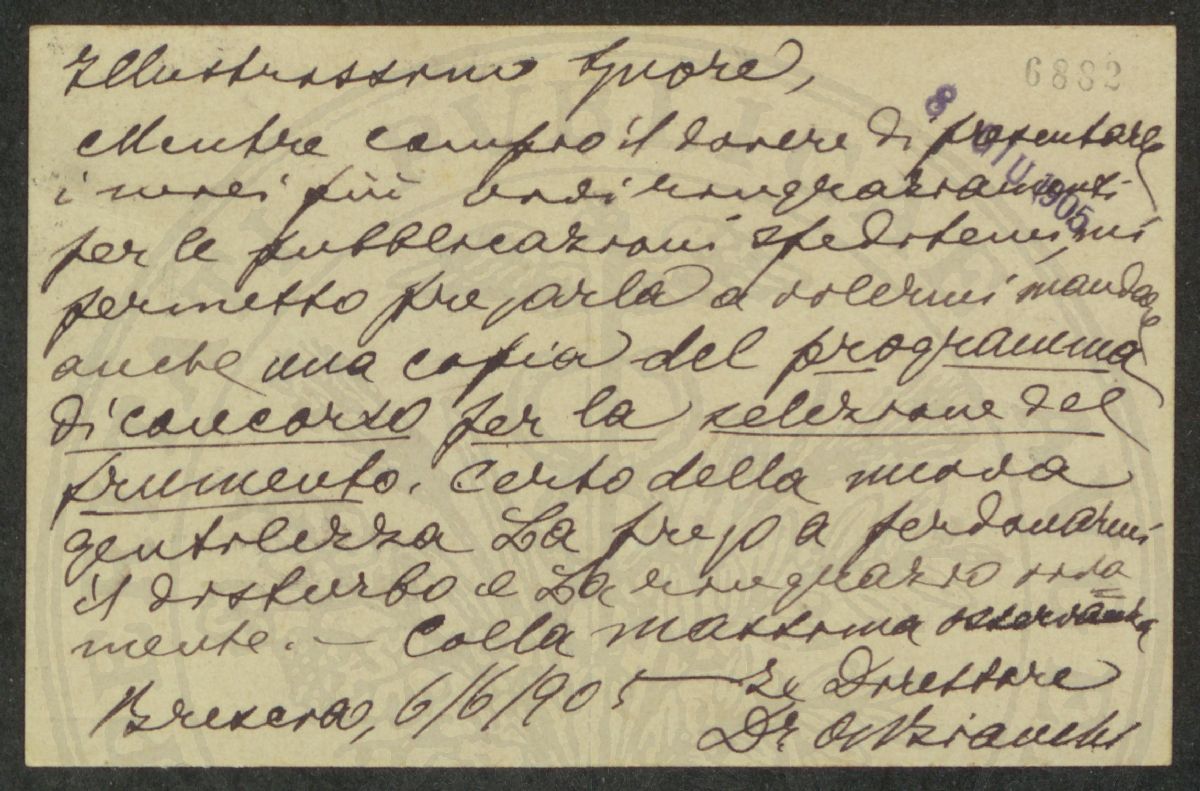 Illustrissimo Signore,
6882
8 GIU 1905
Mentre compio il dovere di presentarle
i miei più vivi ringraziamenti
per le pubblicazioni speditemi, mi
permetto pregarla a volermi mandare
anche una copia del programma
di concorso per la selezione del
frumento. Certo della nuova
gentilezza La prego a perdonarmi
il disturbo e La ringrazio viva
mente. — Colla massima osservanza
Brescia, 6/6/905 — Il Direttore
Dr. Bianchi